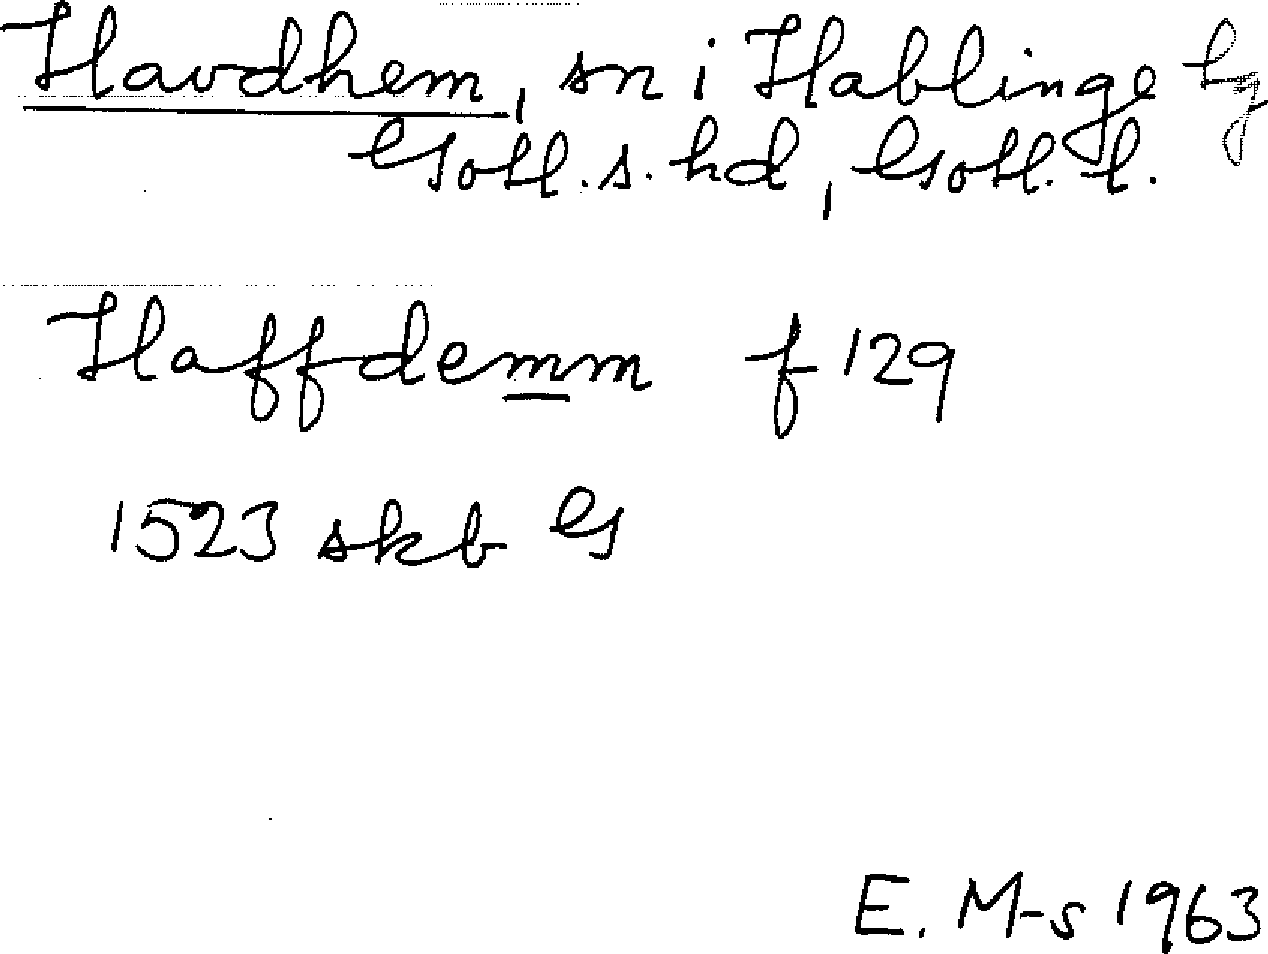 Havdhem, sn i Hablinge tg
Gotl. s. hd, Gotl. l.
Haffdemm f 129
1523 skb G
E. M-s 1963